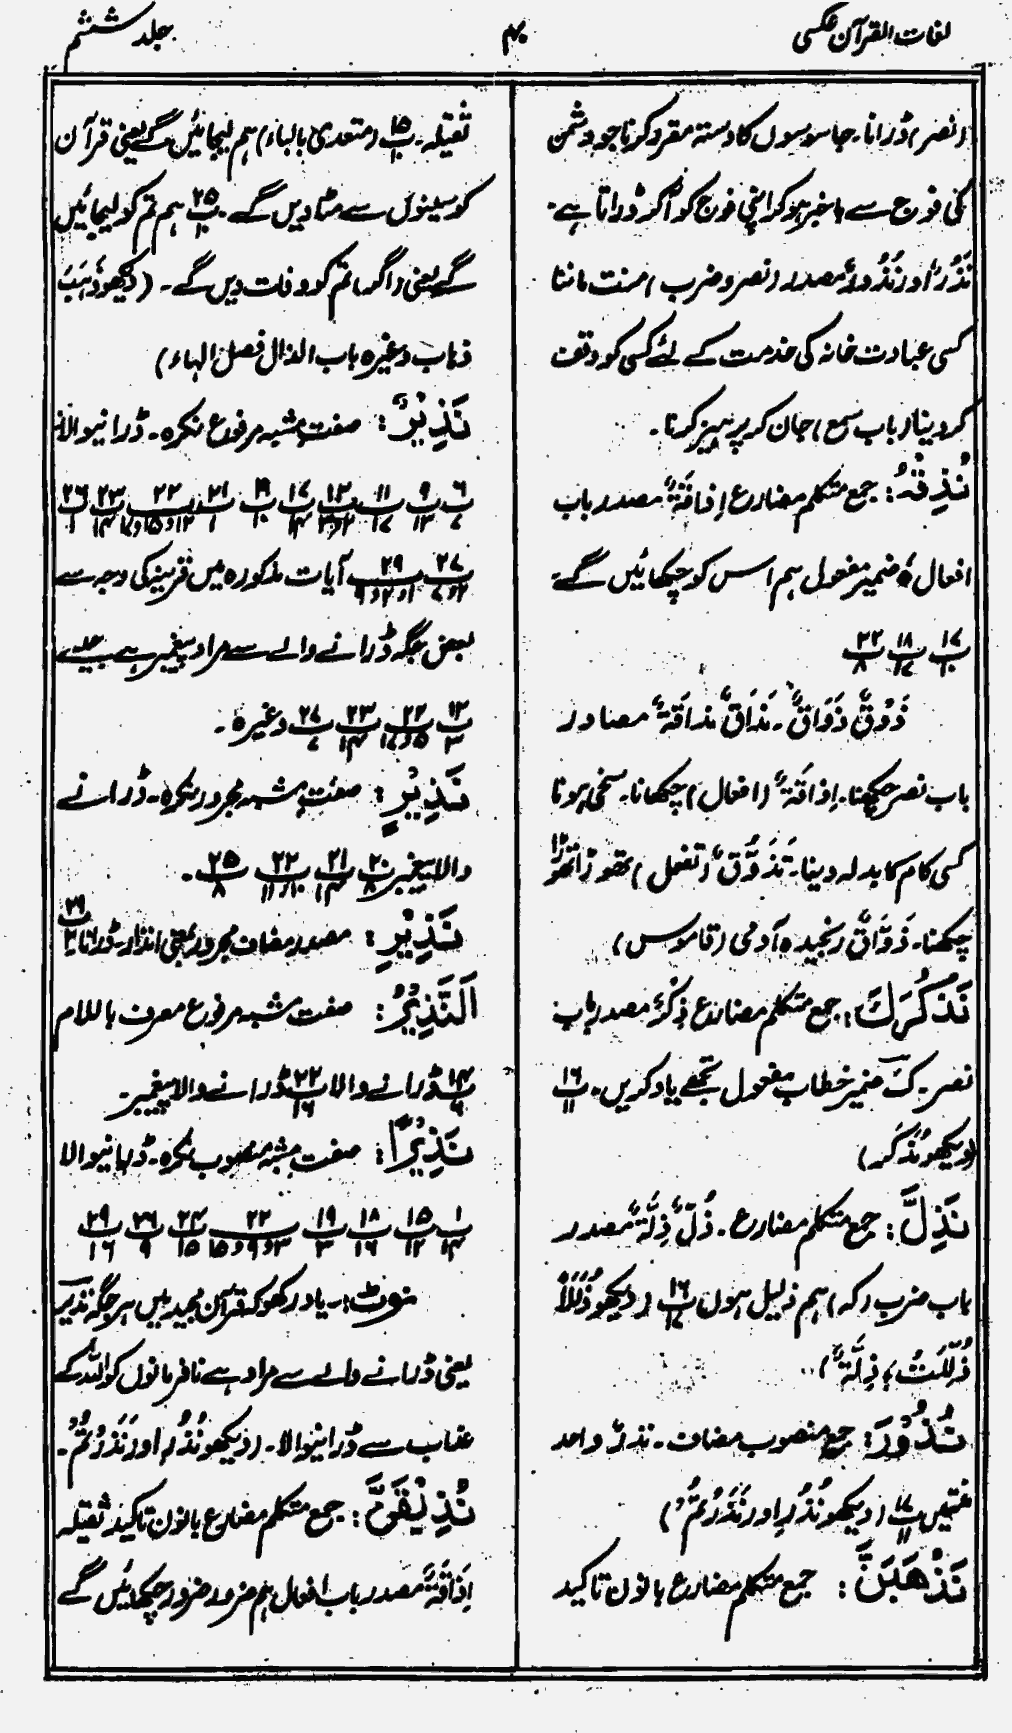 لغات القرآن عکسی
۴۰
جلد ششم
(نصر) ڈرانا۔ جاسوسوں کا دستہ مقرر کرنا جو دشمن
کی فوج سے باخبر ہو کر اپنی فوج کو آکر ڈراتا ہے۔
نَذْرٌ اور نُذُورٌ مصدر (نصر و ضرب) منت ماننا
کسی عبادت خانہ کی خدمت کے لئے کسی کو وقف
کر دینا (باب سمع) جان کر پرہیز کرنا۔
نُذِقْہُ: جمع متکلم مضارع اِذَاقَۃٌ مصدر باب
افعال ہٗ ضمیر مفعول ہم اس کو چکھائیں گے
۱۷/۱۰ ۱۸/۱۷ ۲۲/۸
ذَوْقٌ ذَوَاقٌ۔ مَذَاقٌ مَذَاقَۃٌ مصادر
باب نصر چکھنا۔ اِذَاقَۃٌ (افعال) چکھانا۔ سخی ہونا
کسی کام کا بدلہ دینا۔ تَذَوُّقٌ (تفعل) تھوڑا تھوڑا
چکھنا۔ ذَوَّاقٌ رنجیدہ آدمی (قاموس)
نَذْکُرَكَ: جمع متکلم مضارع ذِکْرٌ مصدر باب
نصر۔ كَ ضمیر خطاب مفعول تجھے یاد کریں۔ ۱۶/۱۱
(دیکھو نُذَکِّر)
نَذِلَّ: جمع متکلم مضارع۔ ذُلٌّ ذِلَّۃٌ مصدر
باب ضرب (کہ) ہم ذلیل ہوں ۱۶/۱۷ (دیکھو ذُلُلًا
ذُلِّلَتْ، ذِلَّۃٌ)
نُذُوْرَ: جمع منصوب مضاف۔ نذرٌ واحد
منتیں ۱۷/۱۱ (دیکھو نُذُرِ اور نَذَرْتُمْ)
نَذْهَبَنَّ: جمع متکلم مضارع بانون تاکید
ثقیلہ۔ ۱۵/۱۰ (متعدی بالباء) ہم لیجائیں گے یعنی قرآن
کو سینوں سے مٹا دیں گے۔ ۲۵/۱۰ ہم تم کو لیجائیں
گے یعنی (اگر) تم کو وفات دیں گے۔ (دیکھو ذَہَبَ
ذہاب وغیرہ باب الذال فصل الہاء)
نَذِيْرٌ: صفت مشبہ مرفوع نکرہ۔ ڈرانیوالا
۶/۷ ۹/۱۳ ۱۱/۱۷ ۱۲/۲و۳ ۱۷/۱۴ ۱۹/۱۰ ۲۱/۱ ۲۲/۱۲و۱۵و۱۷ ۲۳/۱۴ ۲۶/۱
۲۷/۲و۷ ۲۹/۱و۲و۹ آیات مذکورہ میں قرینہ کی وجہ سے
بعض جگہ ڈرانے والے سے مراد پیغمبر ہے جیسے
۱۲/۳ ۲۲/۱۵و۱۷ ۲۳/۱۴ ۲۷/۷ وغیرہ۔
نَذِيْرٍ: صفت مشبہ مجرور نکرہ۔ ڈرانے
والا پیغمبر ۲۰/۸ ۲۱/۱۴ ۲۲/۱۰و۱۱ ۲۵/۸۔
نَذِيْرِ: مصدر مضاف مجرور بمعنی انذار۔ ڈرانا ۲۹/۲
اَلنَّذِيْرُ: صفت مشبہ مرفوع معرف باللام
۱۴/۶ ڈرانے والا ۲۲/۱۶ ڈرانے والا پیغمبر۔
نَذِيْرًا: صفت مشبہ منصوب نکرہ۔ ڈرانیوالا
۱/۱۴ ۱۵/۱۲ ۱۸/۱۶ ۱۹/۳ ۲۲/۳و۹و۱۵ ۲۴/۱۵ ۲۶/۹ ۲۹/۱۶
نوٹ:۔ یاد رکھو کہ قرآن مجید میں ہر جگہ نذیر
یعنی ڈرانے والے سے مراد ہے نافرمانوں کو اللہ کے
عذاب سے ڈرانیوالا۔ (دیکھو نُذُرِ اور نَذَرْتُمْ)۔
نُذِيْقَنَّ: جمع متکلم مضارع بانون تاکید ثقیلہ
اِذَاقَۃٌ مصدر باب افعال ہم ضرور ضرور چکھائیں گے